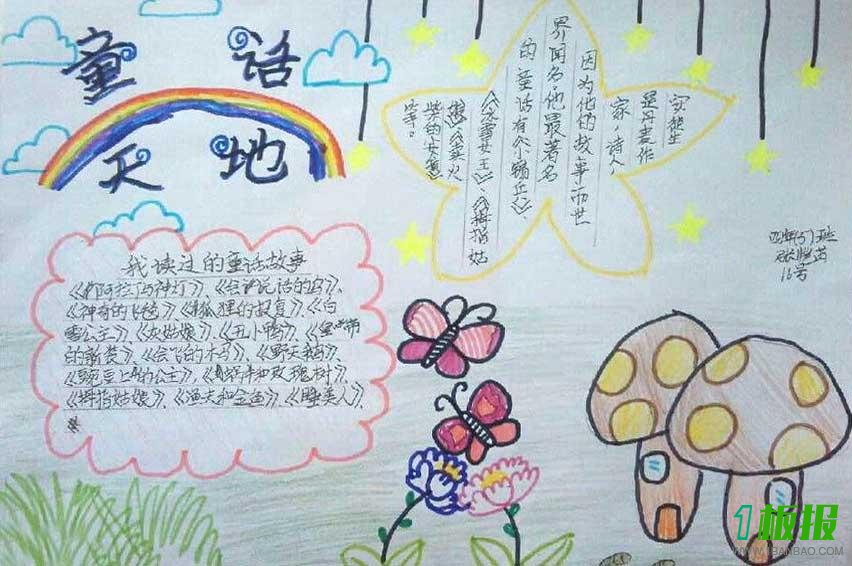 童话
天地
我读过的童话故事
《阿拉丁与神灯》、《会说话的鸟》、
《神奇的飞毯》、《狐狸的报复》、《白
雪公主》、《灰姑娘》、《丑小鸭》、《皇帝
的新装》、《会飞的木马》、《野天鹅》、
《豌豆上的公主》、《蜗牛和玫瑰树》、
《拇指姑娘》、《渔夫和金鱼》、《睡美人》、
等
安徒生
是丹麦作
家,诗人,
因为他的故事而世
界闻名。他最著名
的童话有《小锡兵》、
《冰雪女王》、《拇指姑
娘》、《卖火
柴的女孩》
等。
四年(5)班
16号
1板报
WWW.1BANBAO.COM